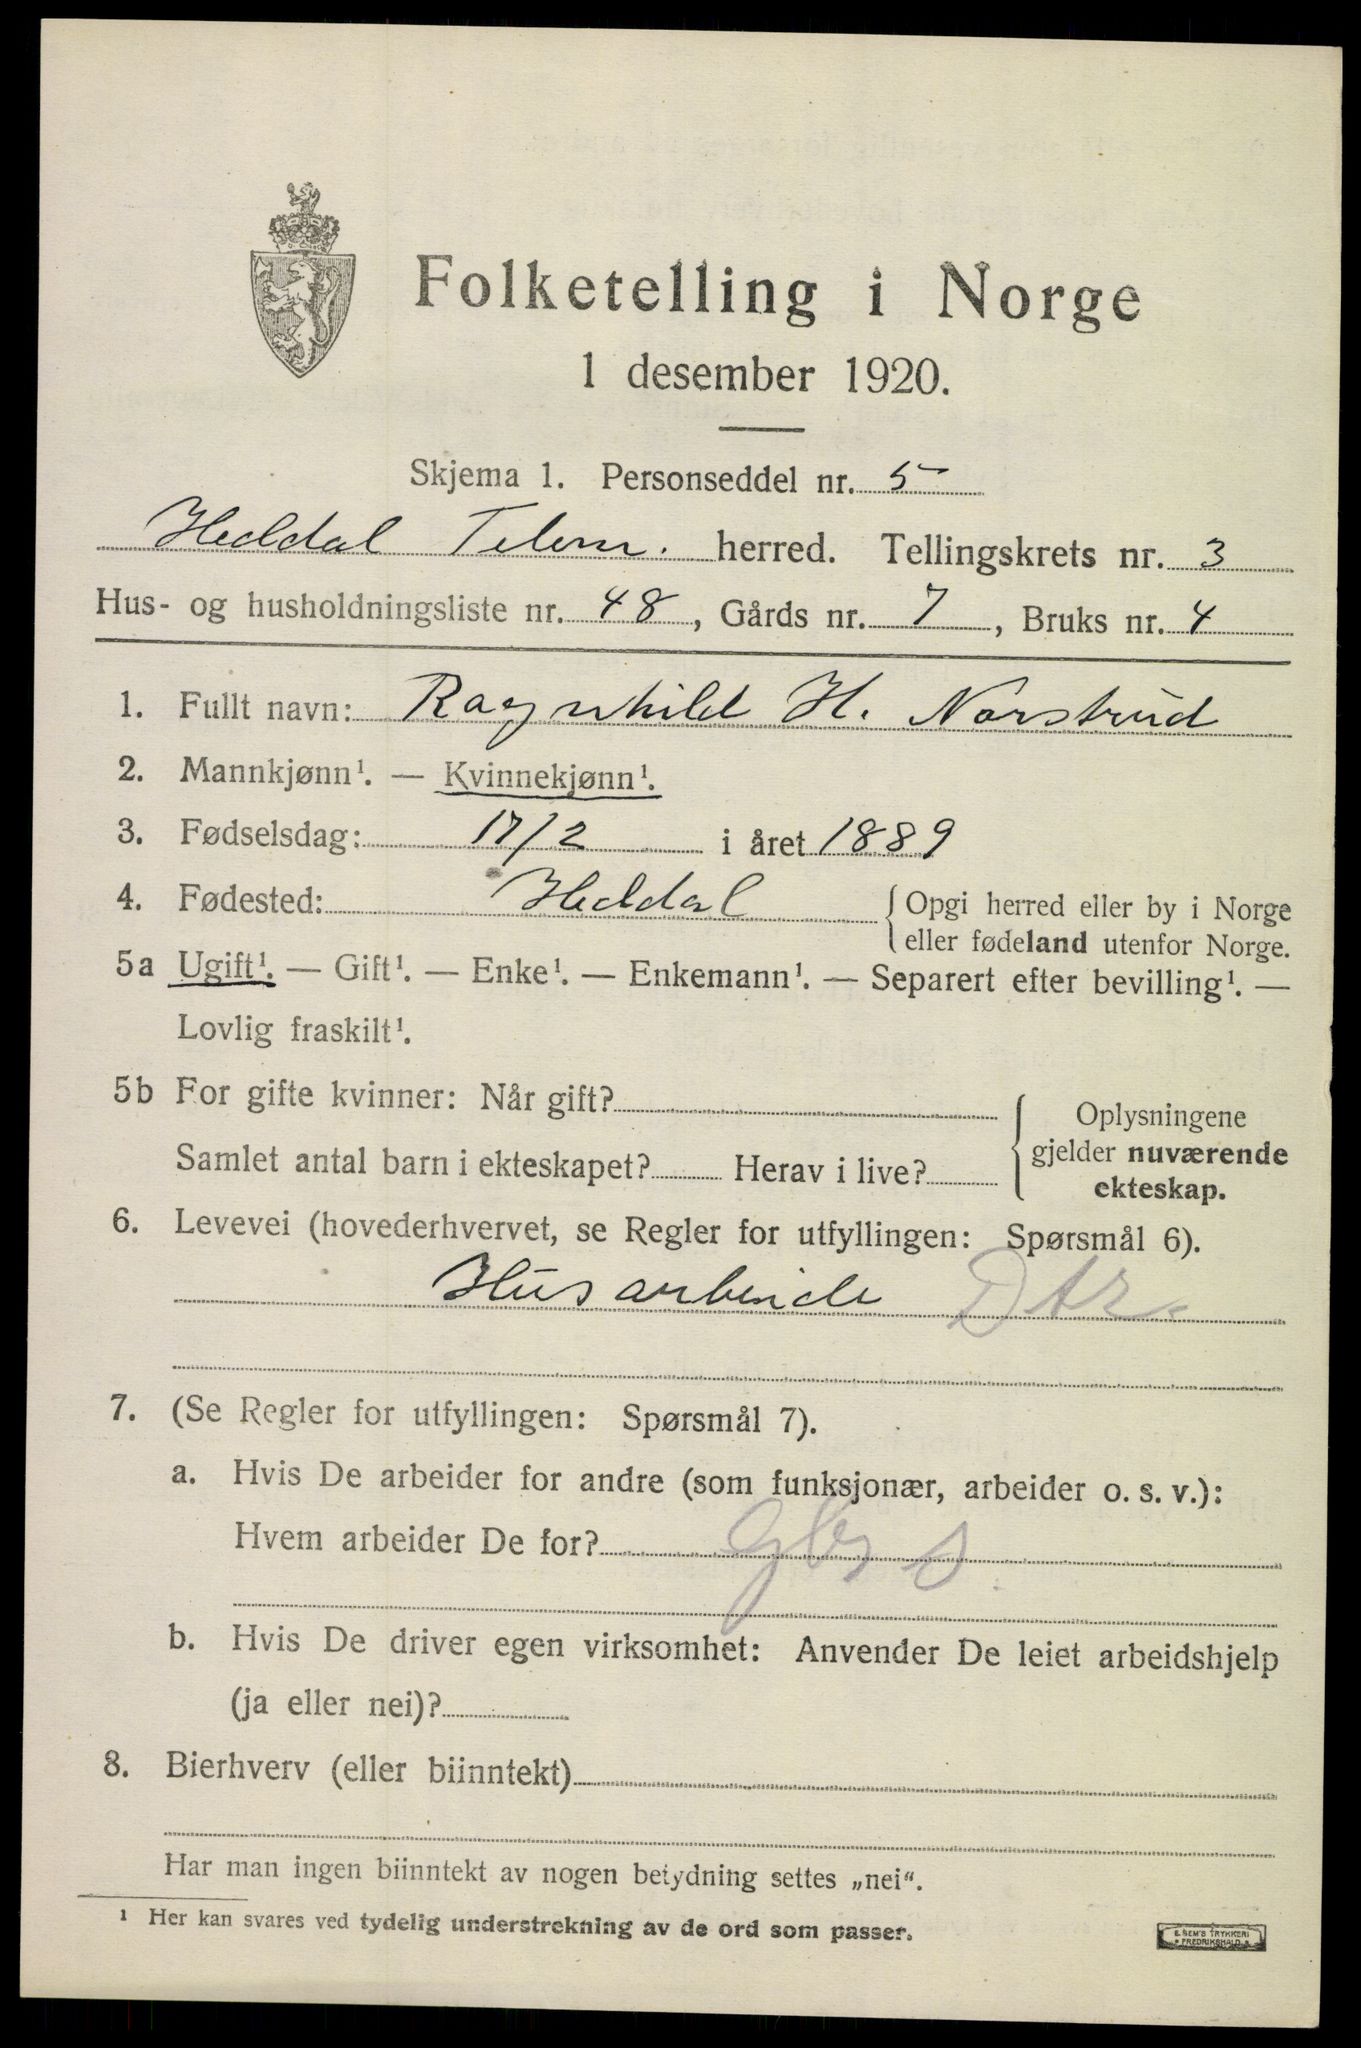 Folketelling i Norge
1 desember 1920.
Skjema 1. Personseddel nr. 5
Heddal Telem. herred. Tellingskrets nr. 3
Hus- og husholdningsliste nr. 48, Gårds nr. 7, Bruks nr. 4
1. Fullt navn: Ragnhild H. Norstrud
2. Mannkjønn¹. — Kvinnekjønn¹.
3. Fødselsdag: 17/2 i året 1889
4. Fødested: Heddal {Opgi herred eller by i Norge
eller fødeland utenfor Norge.
5a Ugift¹. — Gift¹. — Enke¹. — Enkemann¹. — Separert efter bevilling¹. —
Lovlig fraskilt¹.
5b For gifte kvinner: Når gift?
Samlet antal barn i ekteskapet? Herav i live?
Oplysningene
gjelder nuværende
ekteskap.
6. Levevei (hovederhvervet, se Regler for utfyllingen: Spørsmål 6).
Husarbeide
7. (Se Regler for utfyllingen: Spørsmål 7).
a. Hvis De arbeider for andre (som funksjonær, arbeider o. s. v.):
Hvem arbeider De for? Gbr s
b. Hvis De driver egen virksomhet: Anvender De leiet arbeidshjelp
(ja eller nei)?
8. Bierhverv (eller biinntekt)
Har man ingen biinntekt av nogen betydning settes „nei“.
¹ Her kan svares ved tydelig understrekning av de ord som passer.
E. SEM'S TRYKKERI
FREDRIKSHALD